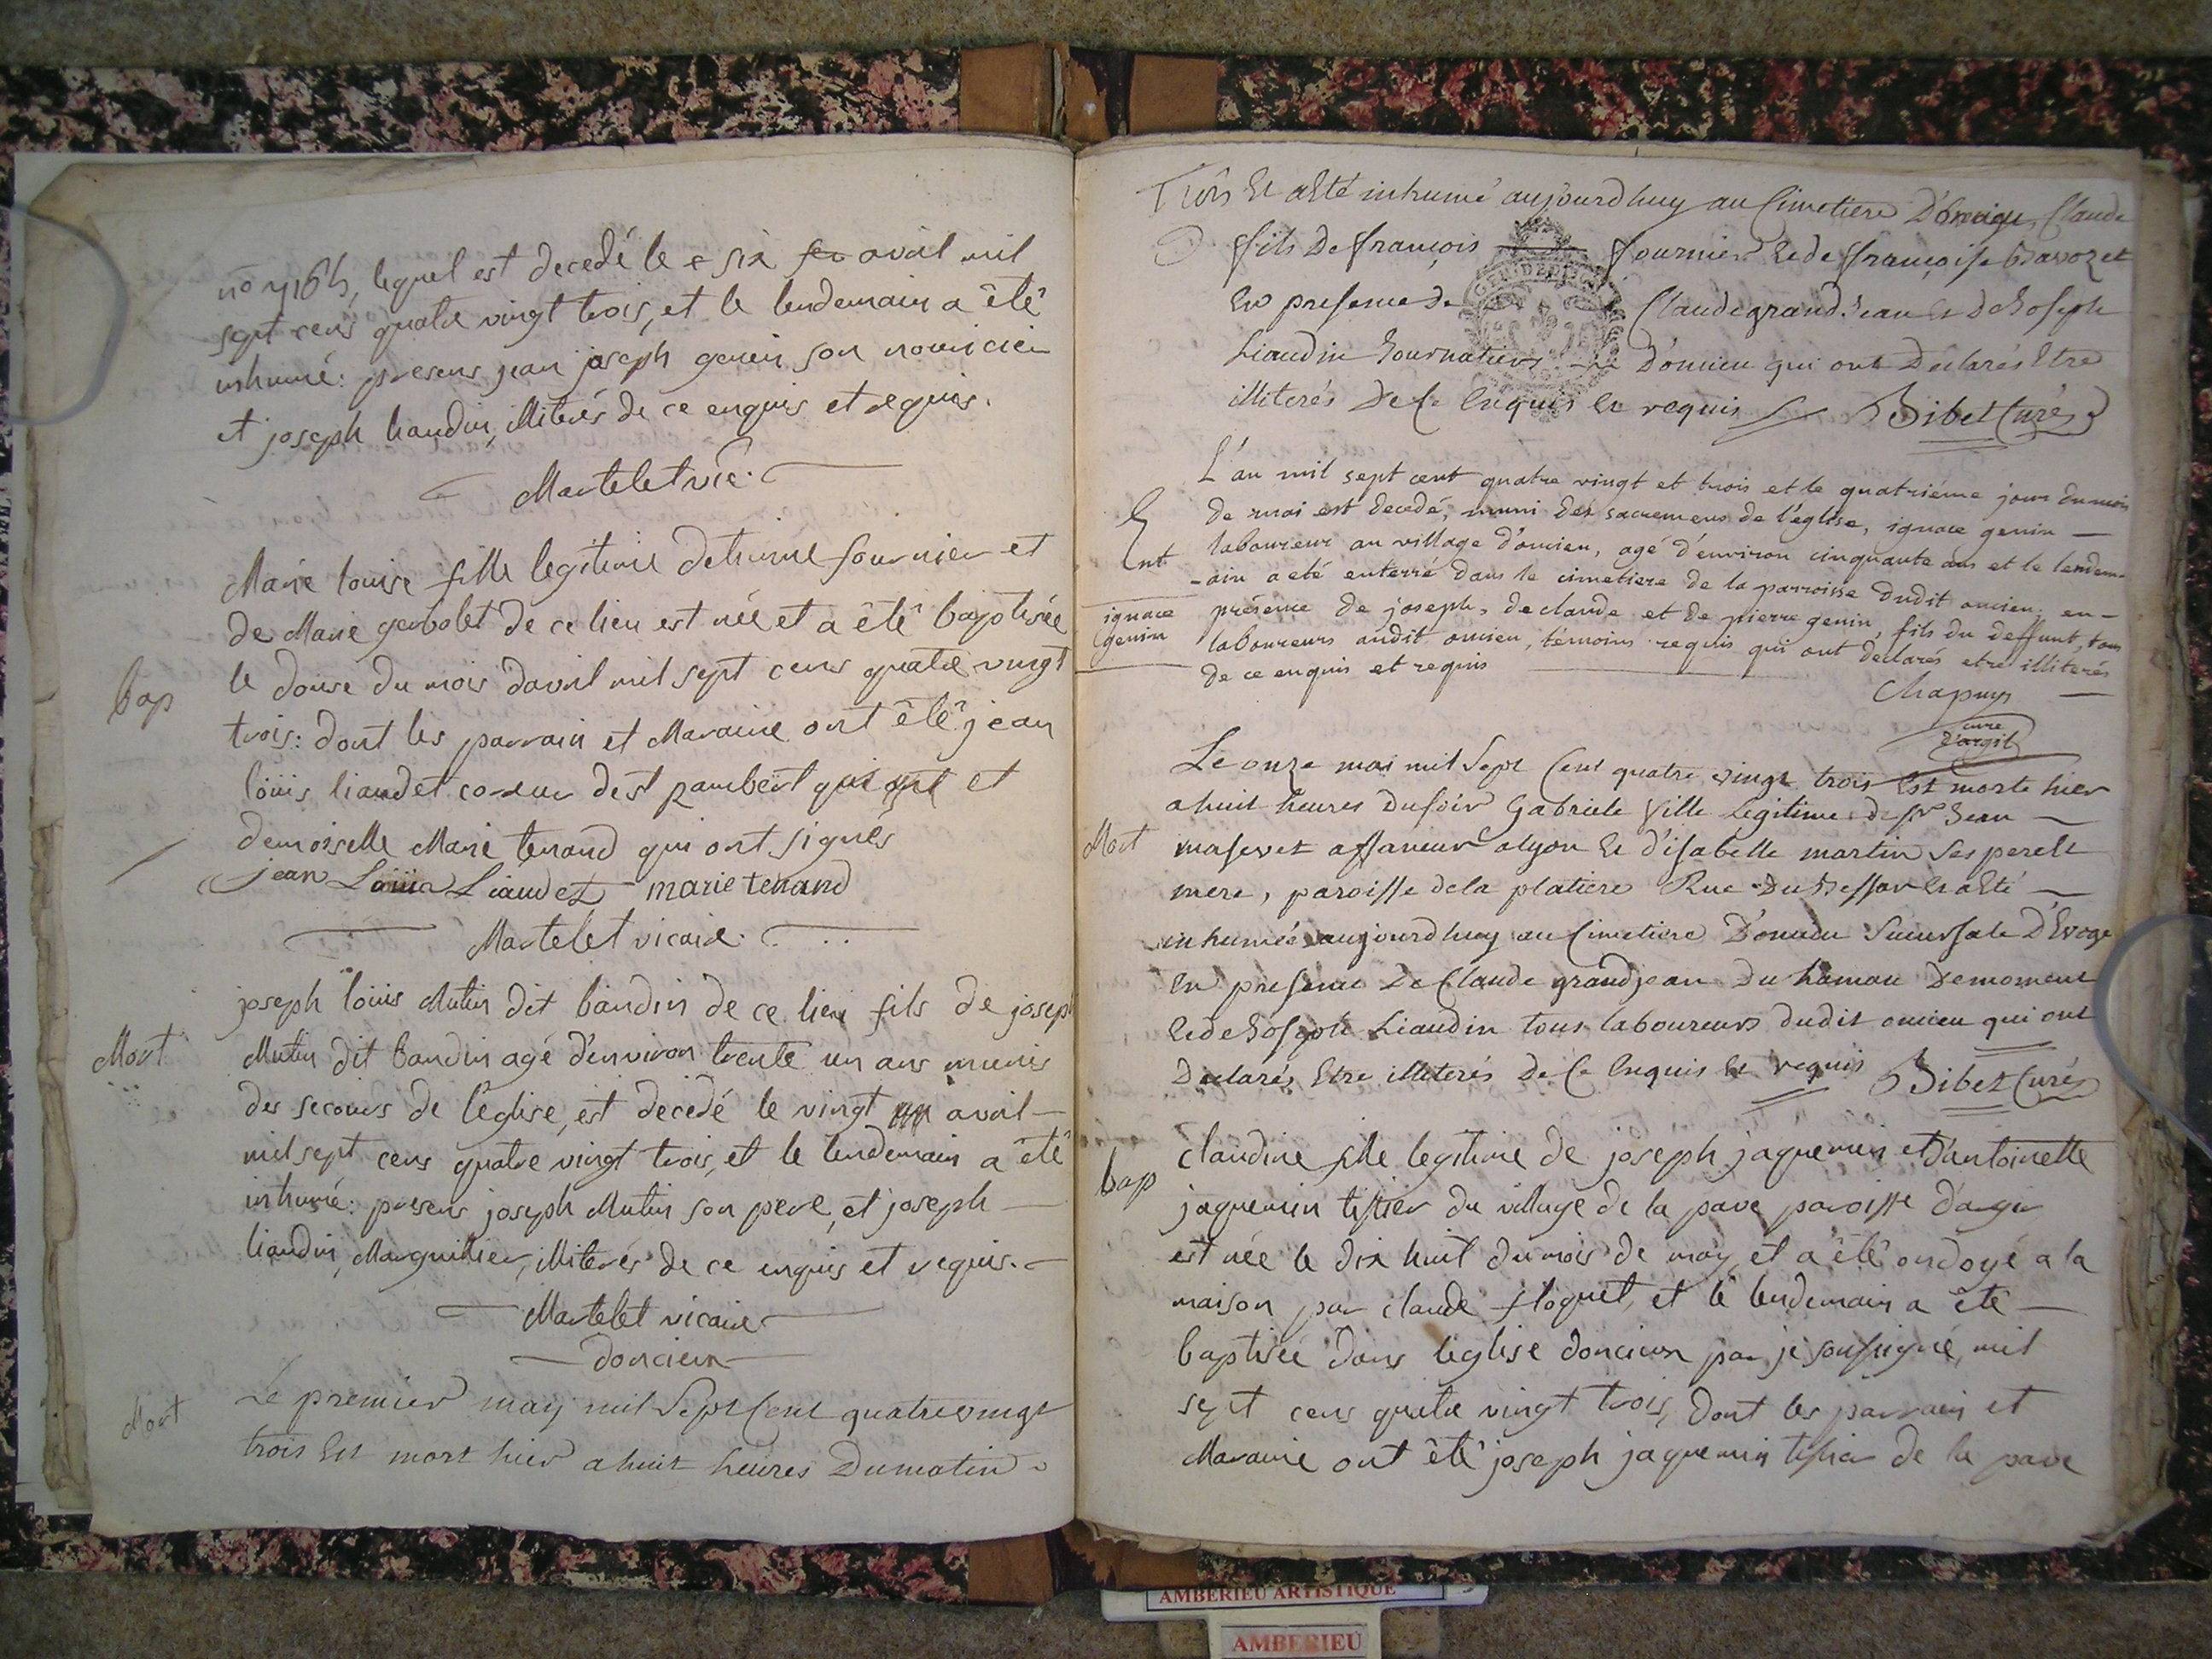 lequel est decedé le six avril mil
sept cens quatre vingt trois, et le lendemain a êté
inhumé: presens jean joseph genin son nouricier
et joseph liaudin, illiterés de ce enquis et requis.
Martelet vic.
Marie louise fille legitime detienne fournier et
de Marie gerbolet de ce lieu est née et a êté baptisée
bap
le douse du mois davril mil sept cens quatre vingt
trois: dont les parrain et Maraine ont êté jean
löuis liaudet dest rambert et
demoiselle Marie tenand qui ont signés
jean Loüis Liaudet marie tenand
Martelet vicaire
joseph löuis Mutin dit baudin de ce lieu fils de joseph
Mort
Mutin dit baudin agé d'environ trente un ans munis
des secours de l'église, est decedé le vingt avril
mil sept cens quatre vingt trois, et le lendemain a êté
inhumé: presens joseph Mutin son pere, et joseph
liaudin, Marguillier, illiterés de ce enquis et requis.
Martelet vicaire
doncieux
Mort
Le premier may mil Sept Cent quatre vingt
trois Est mort hier a huit heures Du matin
Trois Et a Eté inhumé aujourd huy au Cimetiere Claude
fils De françois fournier Et de françoise bavozet
En presence De Claude grand Jean Et De Joseph
Liaudin Journaliers D'oncieu qui ont Declarés Etre
illiterés De Ce Enquis Et requis Bibet Curé
L'an mil sept cent quatre vingt et trois et le quatriéme jour du mois
de mai est decedé, muni des sacremens de l'église, ignace genin
Ent
laboureur au village d'oncieu, agé d'environ cinquante ans et le lendem-
-ain a eté enterré dans le cimetiere de la parroisse dudit oncieu en-
ignace
genin
présence de joseph, de claude et de pierre genin, fils du deffunt, tous
laboureurs audit oncieu, témoins requis qui ont declarés etre illiterés
de ce enquis et requis
Chapuys
curé
d'argil
Le onze mai mil Sept Cent quatre vingt trois Est morte hier
a huit heures Du soir Gabriele fille Legitime de Sr Jean
Mort
affaneur a lyon Et d'isabelle martin Ses pere Et
mere, paroisse de la platiere Rue Et a Eté
inhumée aujourd huy au Cimetiere D'oncieu Succursale D'Evoge
En presence De Claude grandjean Du hamau De moment
Et de Joseph Liaudin tous laboureurs dudit oncieu qui ont
Declarés Etre illiterés De Ce Enquis Et requis Bibet Curé
bap
claudine fille legitime de joseph jaquemin et d'antoinette
jaquemin tissier du village de la pave paroisse
est née le dix huit du mois de may, et a êté ondoyé a la
maison par claude floquet, et le lendemain a êté
baptisée dans leglise doncieux par je soussigné, mil
sept cens quatre vingt trois, Dont les parrain et
Maraine ont êté joseph jaquemin tissier de la pave
AMBERIEU ARTISTIQUE
AMBERIEU